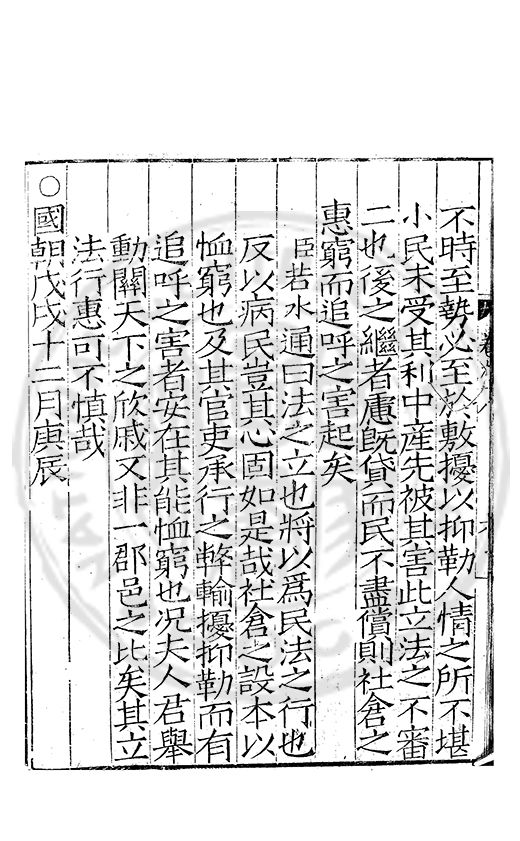 不時至勢必至於敷擾以抑勒人情之所不堪
小民未受其利中産先被其害此立法之不審
二也後之繼者慮既貸而民不盡償則社倉之
惠窮而追呼之害起矣
臣若水通曰法之立也將以爲民法之行也
反以病民豈其心固如是哉社倉之設本以
恤窮也及其官吏承行之弊輸擾抑勒而有
追呼之害者安在其能恤窮也况夫人君舉
動關天下之欣戚又非一郡邑之比矣其立
法行惠可不慎哉
○國朝戊戌十二月庚辰